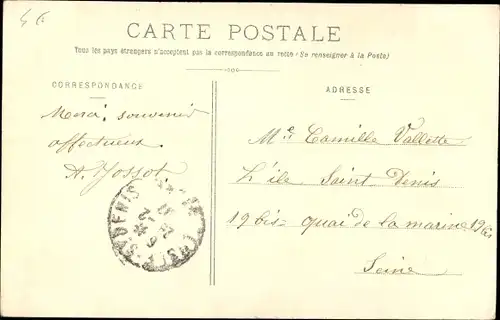 4€
CARTE POSTALE
Tous les pays étrangers n'acceptent pas la correspondance au recto (Se renseigner à la Poste)
CORRESPONDANCE
ADRESSE
Merci, souvenir
affectueux
A. Jossot
Melle Camille Vallette
L'ile Saint Denis
19 bis quai de la marine 19 bis
Seine
ST DENIS